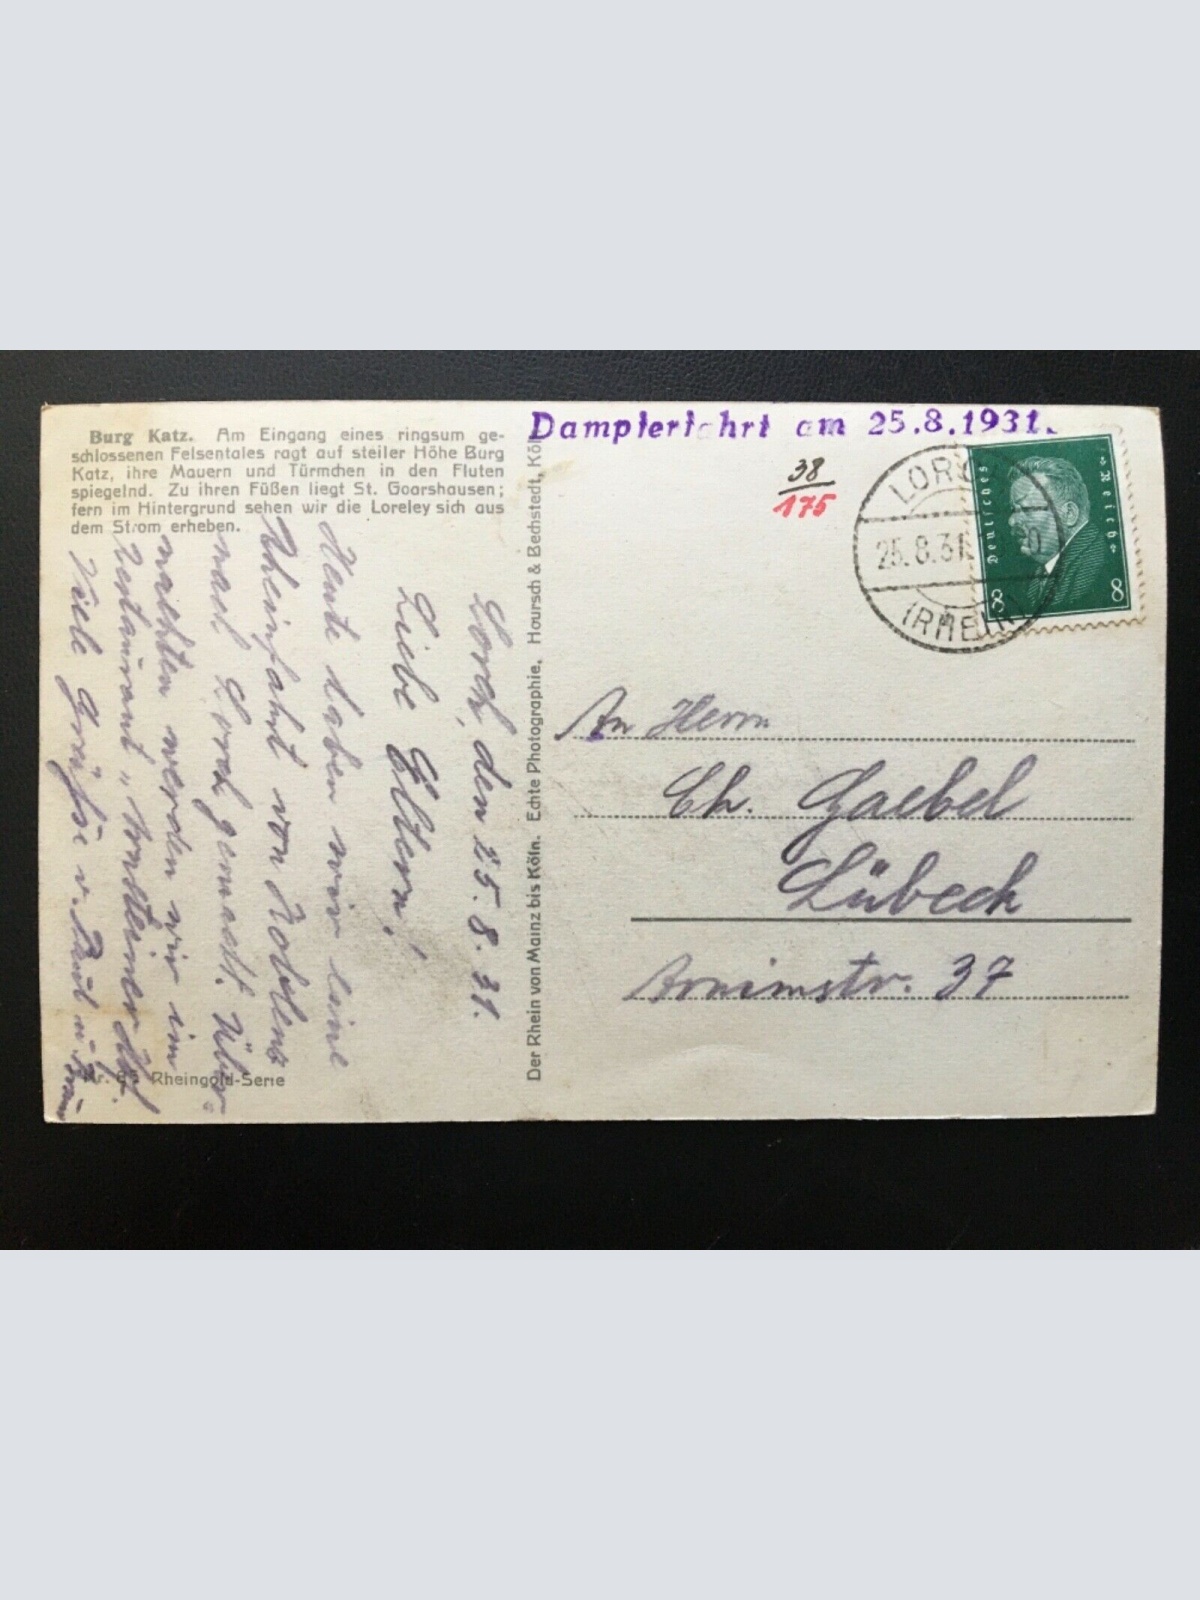 Burg Katz. Am Eingang eines ringsum ge-
schlossenen Felsentales ragt auf steiler Höhe Burg
Katz, ihre Mauern und Türmchen in den Fluten
spiegelnd. Zu ihren Füßen liegt St. Goarshausen;
fern im Hintergrund sehen wir die Loreley sich aus
dem Strom erheben.
Lorch, den 25. 8. 31.
Liebe Eltern!
Heute haben wir eine
Rheinfahrt von Koblenz
nach Lorch gemacht. Über-
nachten werden wir im
Restaurant
Viele Grüße v. Paul u.
Nr. Rheingold-Serie
Der Rhein von Mainz bis Köln. Echte Photographie. Hoursch & Bechstedt, Köln
Dampferfahrt am 25.8.1931.
38
175
LORCH
25.8.31
(RHEIN)
Deutsches Reich
8 8
An Herrn
Ch. Gaebel
Lübeck
Arnimstr. 37